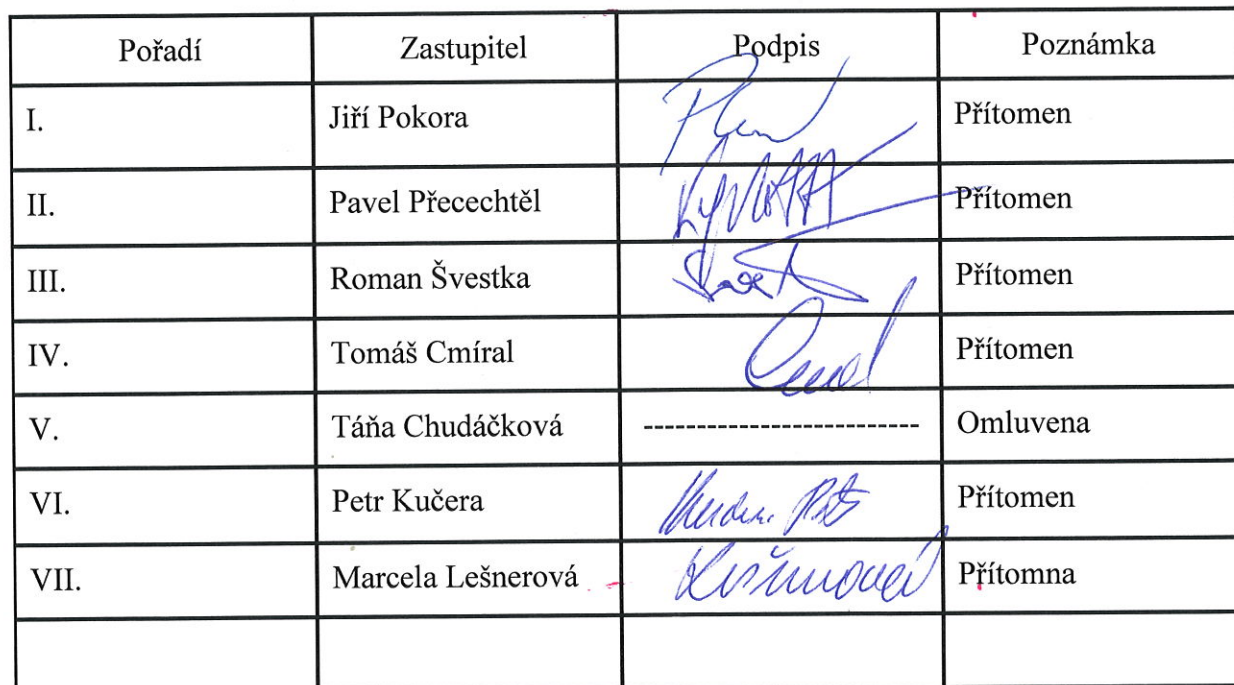 Pořadí Zastupitel Podpis Poznámka
I. Jiří Pokora Přítomen
II. Pavel Přecechtěl Přítomen
III. Roman Švestka Přítomen
IV. Tomáš Cmíral Přítomen
V. Táňa Chudáčková ------------------------- Omluvena
VI. Petr Kučera Přítomen
VII. Marcela Lešnerová Přítomna